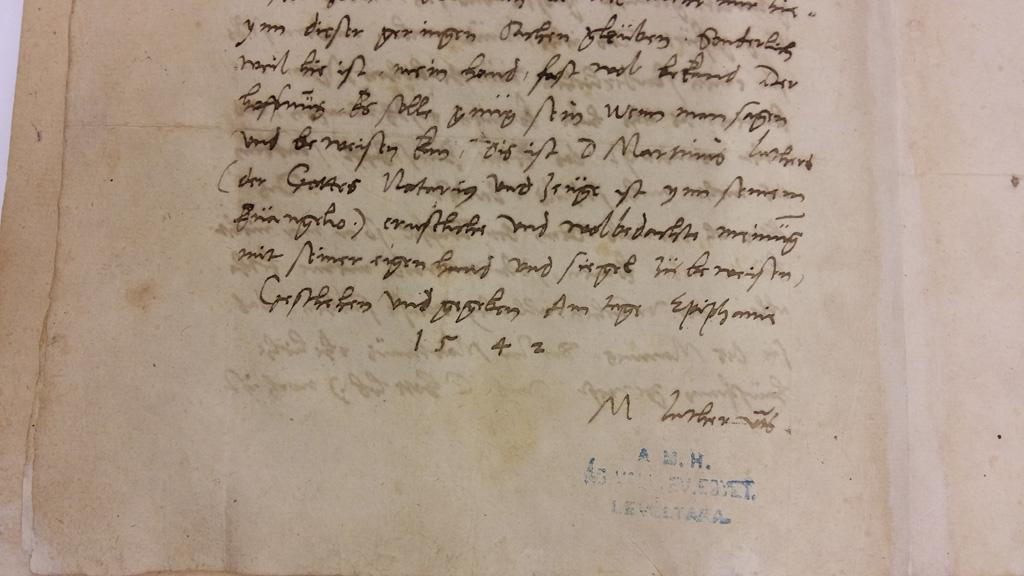 ynn dieser geringen Sachen gleuben. Sonderlich
weil hie ist, mein hand, fast wol bekand, Der
hoffnung Es solle gnug sein wenn man sagen
vnd beweisen kan, Dis ist D Martinus Luthers
(der Gottes Notarius vnd zeuge ist ynn seinem
Euangelio) ernstliche vnd wolbedachte meinung
mit seiner eigen hand vnd siegel zu beweisen,
Geschehen vnd gegeben Am tage Epiphanie
1542
M Luther
A M. H.
ÁG. EV. EGYET.
LEVÉLTÁRA.